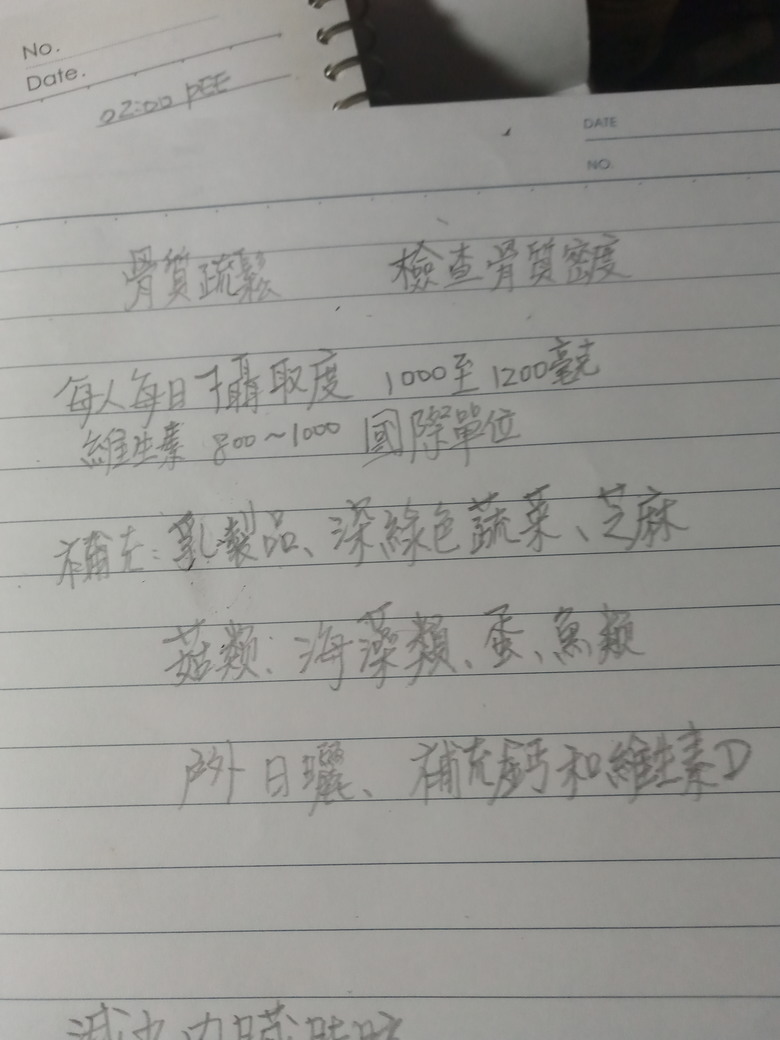 No.
Date.
02:00 PEE
DATE
NO.
骨質疏鬆 檢查骨質密度
每人每日攝取度 1000至1200毫克
維生素 800~1000 國際單位
補充:乳製品、深綠色蔬菜、芝麻
菇類:海藻類、蛋、魚類
戶外日曬、補充鈣和維生素D
減少內臟脂肪